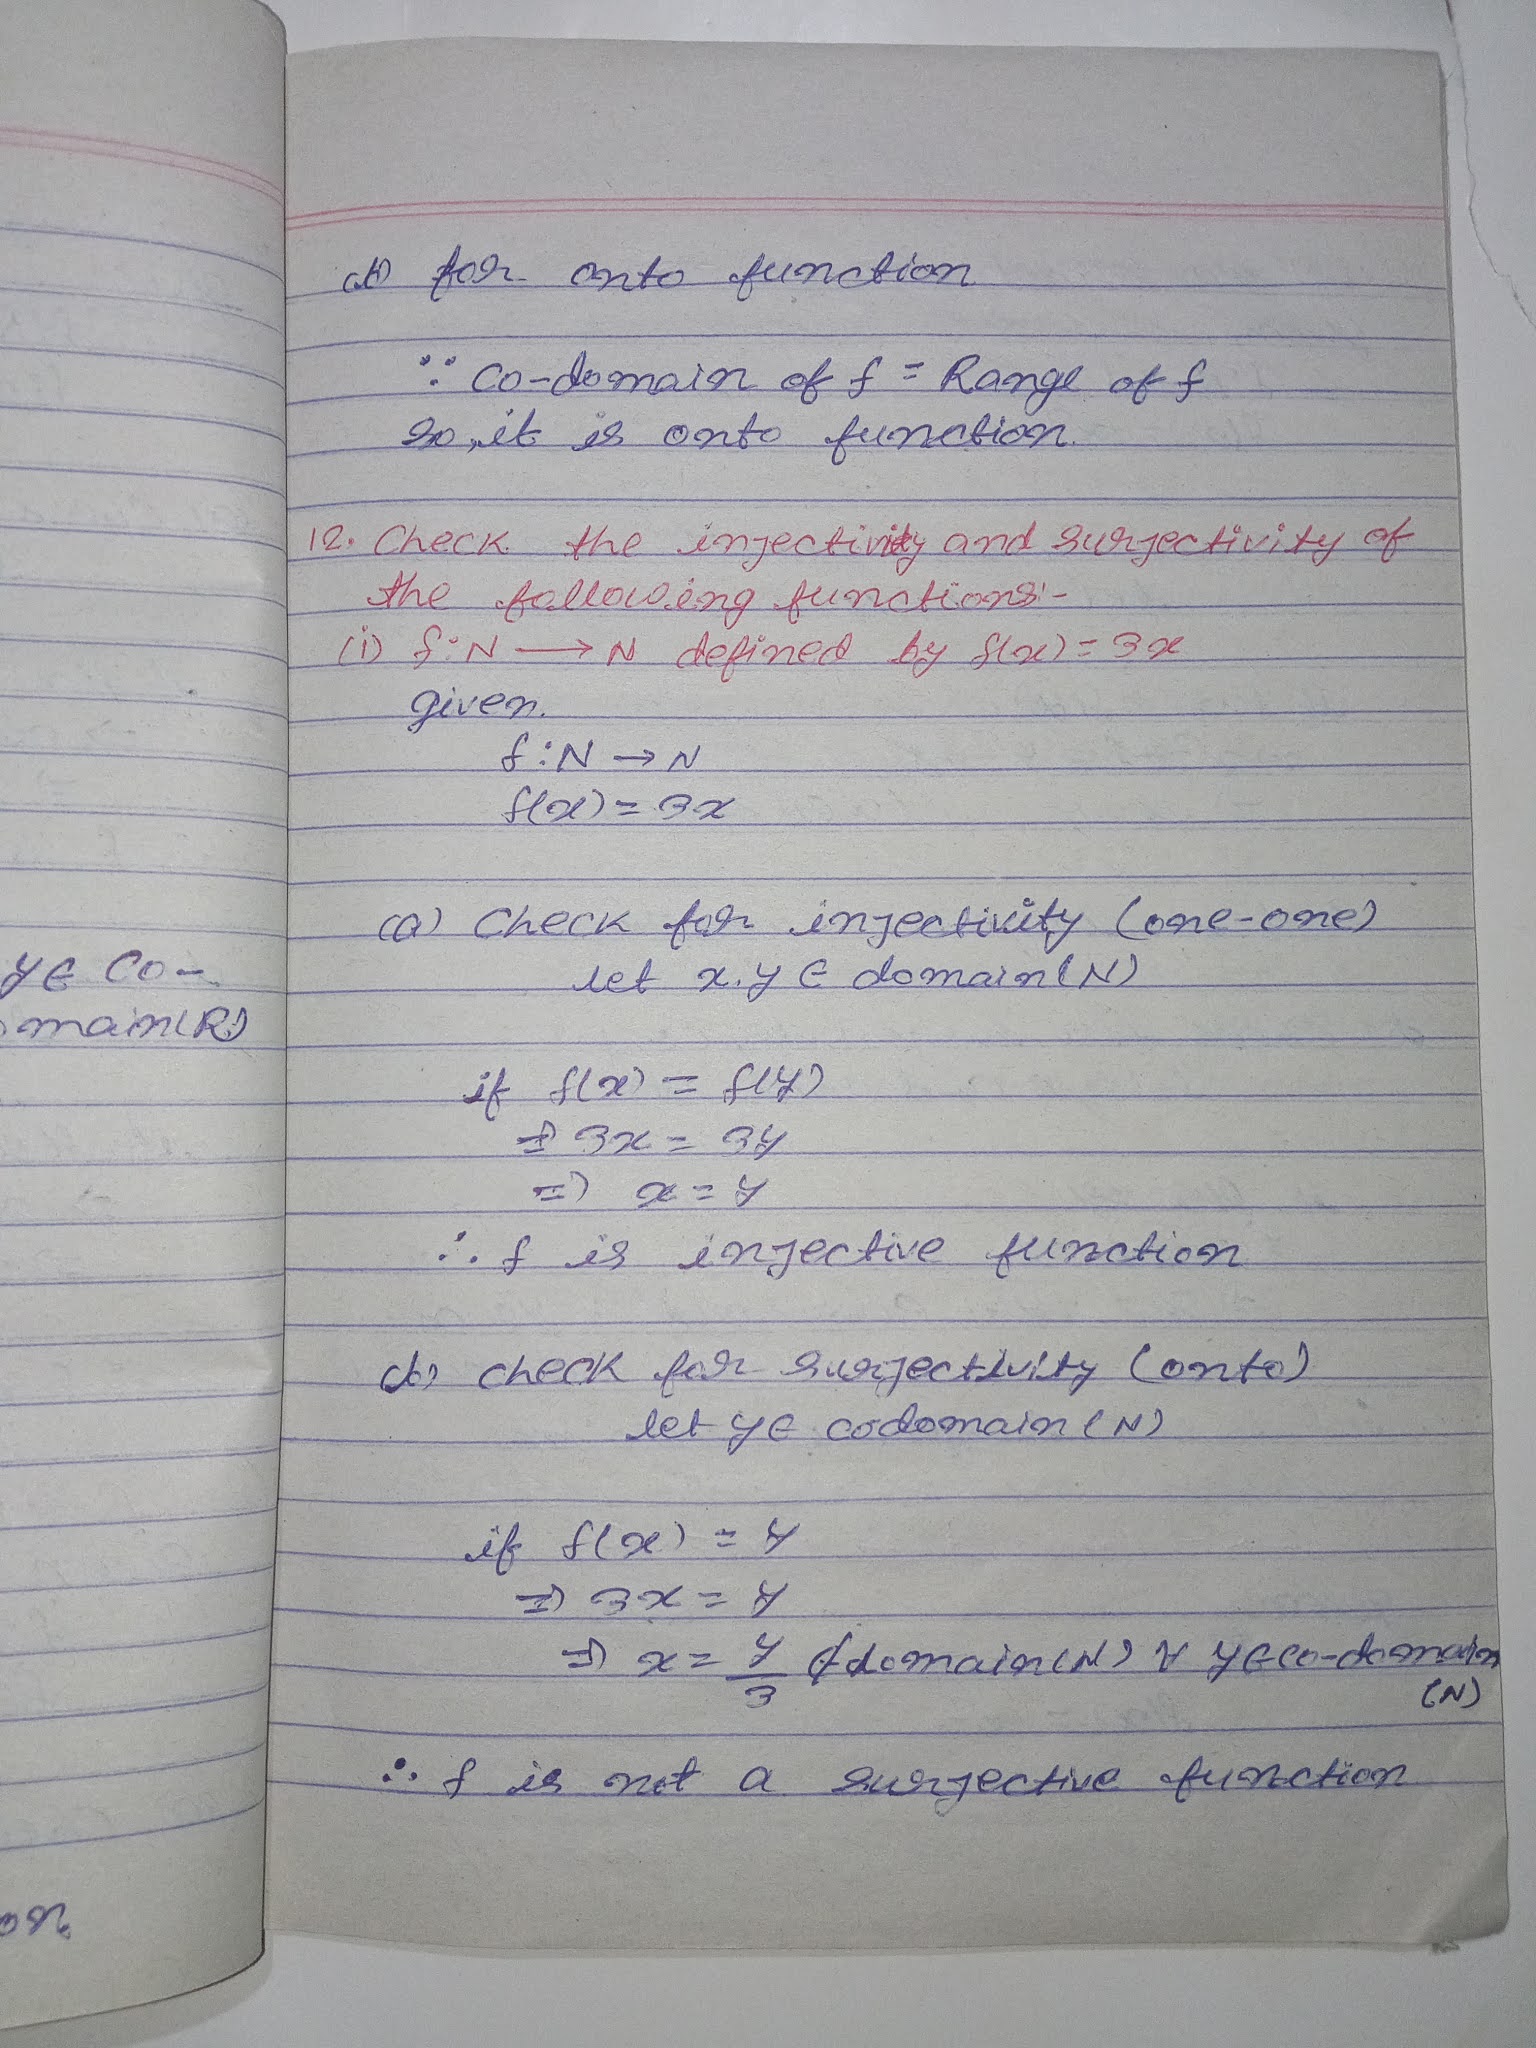 (b) for onto function
∵ Co-domain of f = Range of f
so, it is onto function.
12. Check the injectivity and surjectivity of
the following functions:-
(i) f:N ⟶ N defined by f(x) = 3x
given.
f:N → N
f(x) = 3x
(a) Check for injectivity (one-one)
let x,y ∈ domain(N)
if f(x) = f(y)
⇒ 3x = 3y
⇒ x = y
∴ f is injective function
(b) check for surjectivity (onto)
let y ∈ codomain (N)
if f(x) = y
⇒ 3x = y
⇒ x = y/3 ∉ domain(N) ∀ y ∈ co-domain
(N)
∴ f is not a surjective function
y ∈ Co-
main(R)